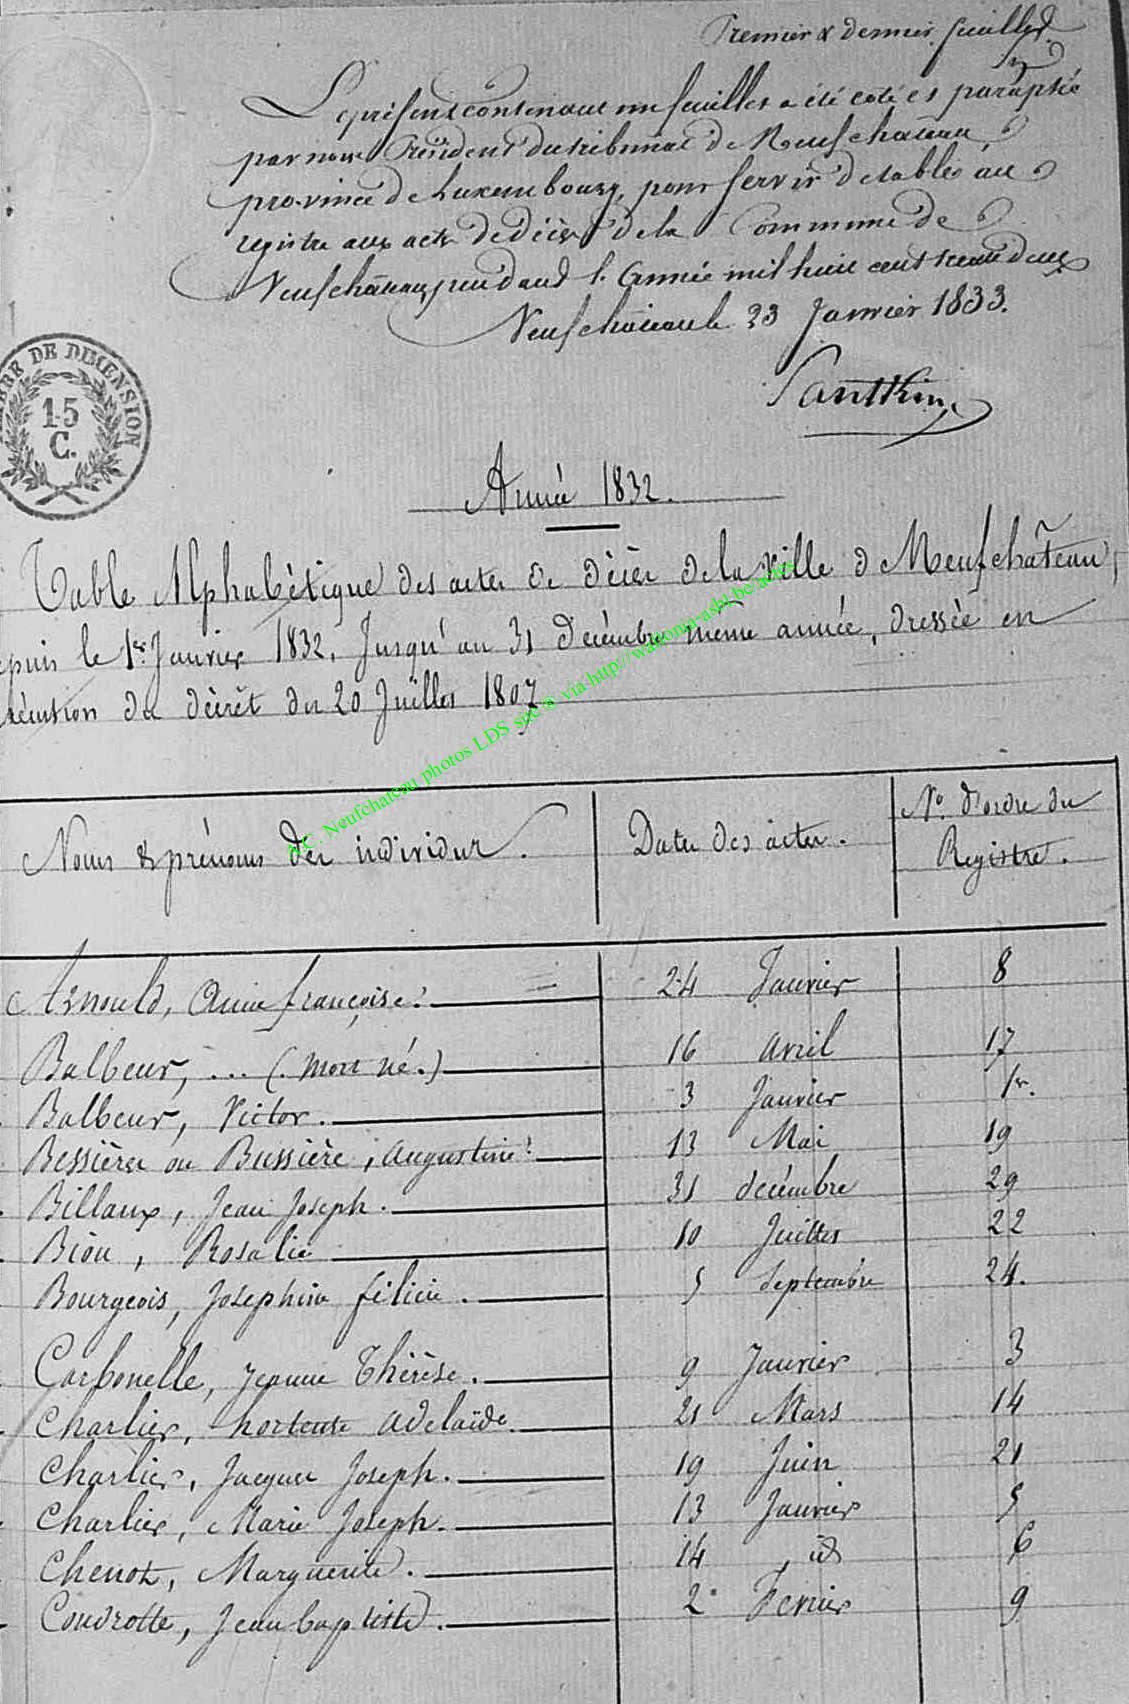 Premier & dernier feuillet
Le présent contenant un feuillet a été coté et paraphé
par nous Président du tribunal de Neufchateau
province de Luxembourg, pour servir de table au
registre aux actes de décès de la Commune de
Neufchateau, pendant l'année mil huit cent trente deux
Neufchateau le 23 Janvier 1833.
DE DIMENSION
15
C.
Santkin
Année 1832.
Table Alphabètique des actes de décès de la Ville de Neufchâteau,
epuis le 1er Janvier 1832, Jusqu'au 31 Decémbre même année, dressée en
xécution du décrèt du 20 Juillet 1807
A.C. Neufchateau photos LDS sur via http://wallonia-asbl.be/actes
Noms & prénoms des individus. Dates des actes. No. d'ordre du
Registre.
Arnould, Anne françoise. 24 Janvier 8
Balbeur, ... (mort né.) 16 avril 17
Balbeur, Victor. 3 Janvier 1er.
Bessière ou Bussière, augustine 13 Mai 19
Billaux, Jean Joseph. 31 decémbre 29
Bìou, Rosalie 10 Juillet 22
Bourgeois, Josephine félicie. 5 Septembre 24.
Carbonelle, Jeanne Thérèse. 9 Janvier 3
Charlier, hortense adelaïde. 21 Mars 14
Charlier, Jacques Joseph. 19 Juin 21
Charlier, Marie Joseph. 13 Janvier 5
Chenot, Marguerite. 14 id 6
Coudrotte, Jean baptiste. 2 Fevrier 9